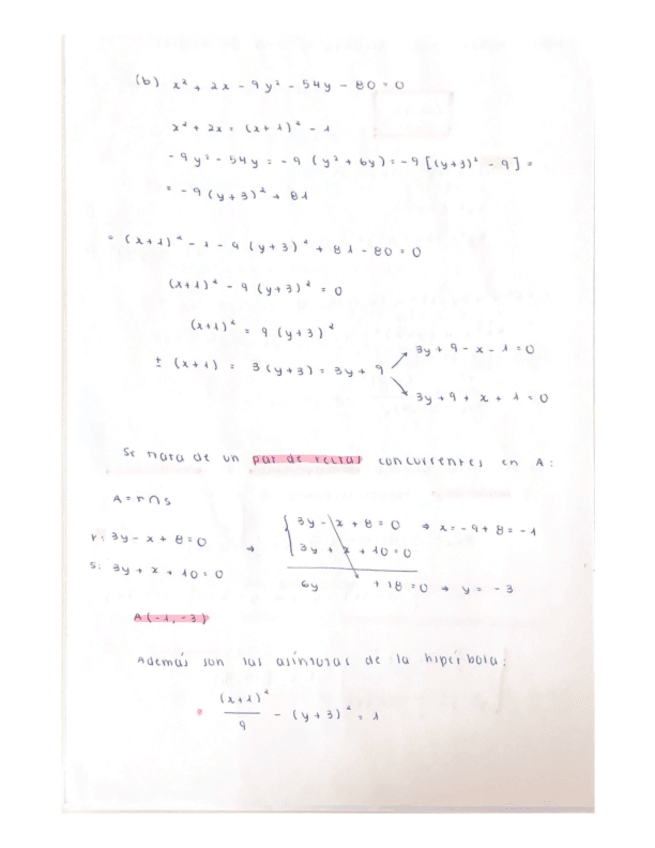 (b) x² + 2x - 9y² - 54y - 80 = 0
x² + 2x = (x+1)² - 1
- 9y² - 54y = - 9 (y² + 6y) = - 9 [(y+3)² - 9] =
= - 9 (y+3)² + 81
(x+1)² - 1 - 9 (y+3)² + 81 - 80 = 0
(x+1)² - 9 (y+3)² = 0
(x+1)² = 9 (y+3)²
± (x+1) = 3(y+3) = 3y + 9
3y + 9 - x - 1 = 0
3y + 9 + x + 1 = 0
Se trata de un par de rectas concurrentes en A:
A = r ∩ s
r: 3y - x + 8 = 0
s: 3y + x + 10 = 0
⇒
3y - x + 8 = 0 ⇒ x = - 9 + 8 = - 1
3y + x + 10 = 0
6y + 18 = 0 ⇒ y = - 3
A(-1, -3)
Además son las asíntotas de la hipérbola:
(x+1)²/9 - (y+3)² = 1